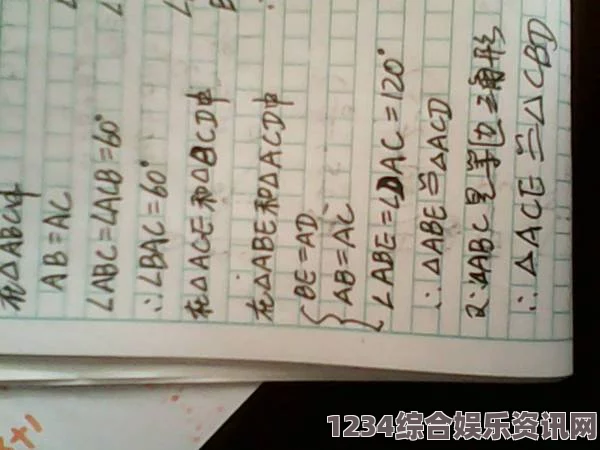 在△ABC中
AB=AC
∠ABC=∠ACB=60°
∴∠BAC=60°
在△ACE和△BCD中
在△ABE和△ACD中
BE=AD
AB=AC
∠ABE=∠DAC=120°
∴△ABE≌△ACD
又∵△ABC是等边三角形
∴△ACE≌△CBD
1234综合娱乐资讯网